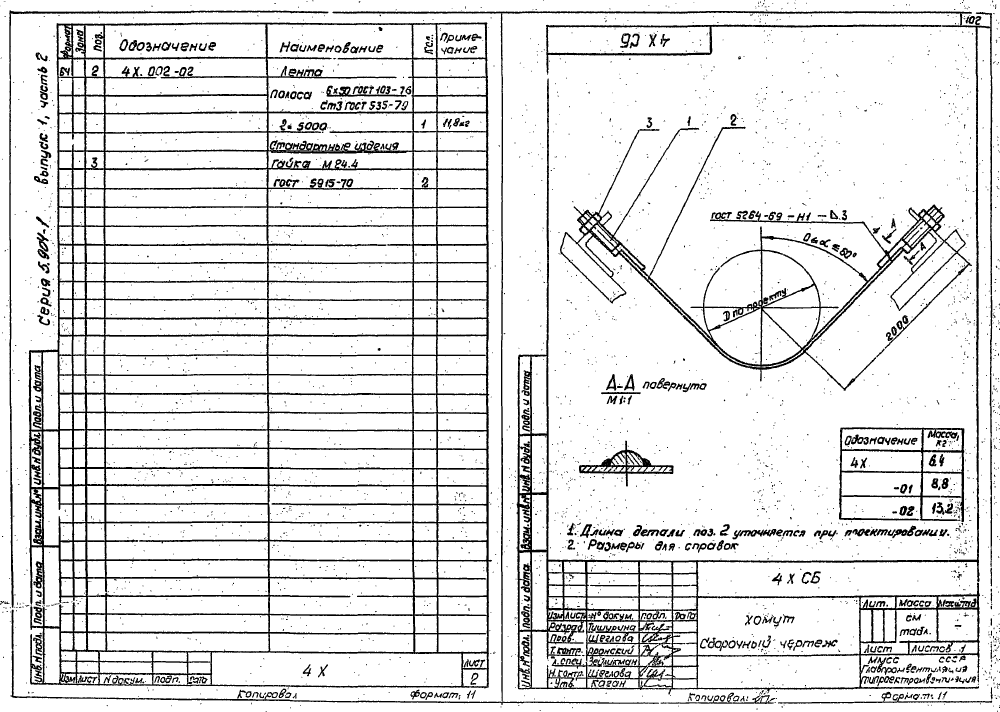 Серия 5.904-1 выпуск 1, часть 2
Формат Зона Поз. Обозначение Наименование Кол. Приме-
чание
БЧ 2 4Х.002-02 Лента
Полоса 6х50 ГОСТ 103-76
Ст3 ГОСТ 535-79
ℓ= 5000 1 11,8кг
Стандартные изделия
3 Гайка М24.4
ГОСТ 5915-70 2
Инв.№ подл. Подп. и дата Взам.инв.№ Инв.№ дубл. Подп. и дата
Изм Лист № докум. Подп. Дата
4 Х
Лист
2
Копировал Формат: 11
102
4Х СБ
3 1 2
ГОСТ 5264-69 – Н1 – ⊿.3
4
А
А
0≤α≤60°
D по проекту
2000
А-А повернута
М1:1
Обозначение Масса, кг
4Х 6,4
-01 8,8
-02 13,2
1. Длина детали поз. 2 уточняется при проектировании.
2. Размеры для справок
Инв.№ подл. Подп. и дата Взам.инв.№ Инв.№ дубл. Подп. и дата
4 Х СБ
Изм Лист № докум. Подп. Дата
Разраб. Тишурина
Пров. Щеглова
Т.контр. Пронский
Гл.спец. Зейликман
Н.контр. Щеглова
Утв. Каган
Хомут
Сборочный чертеж
Лит. Масса Масштаб
см
табл.
–
Лист Листов 1
ММСС СССР
Главпромвентиляция
Гипроектпромвентиляция
Копировал: Формат: 11